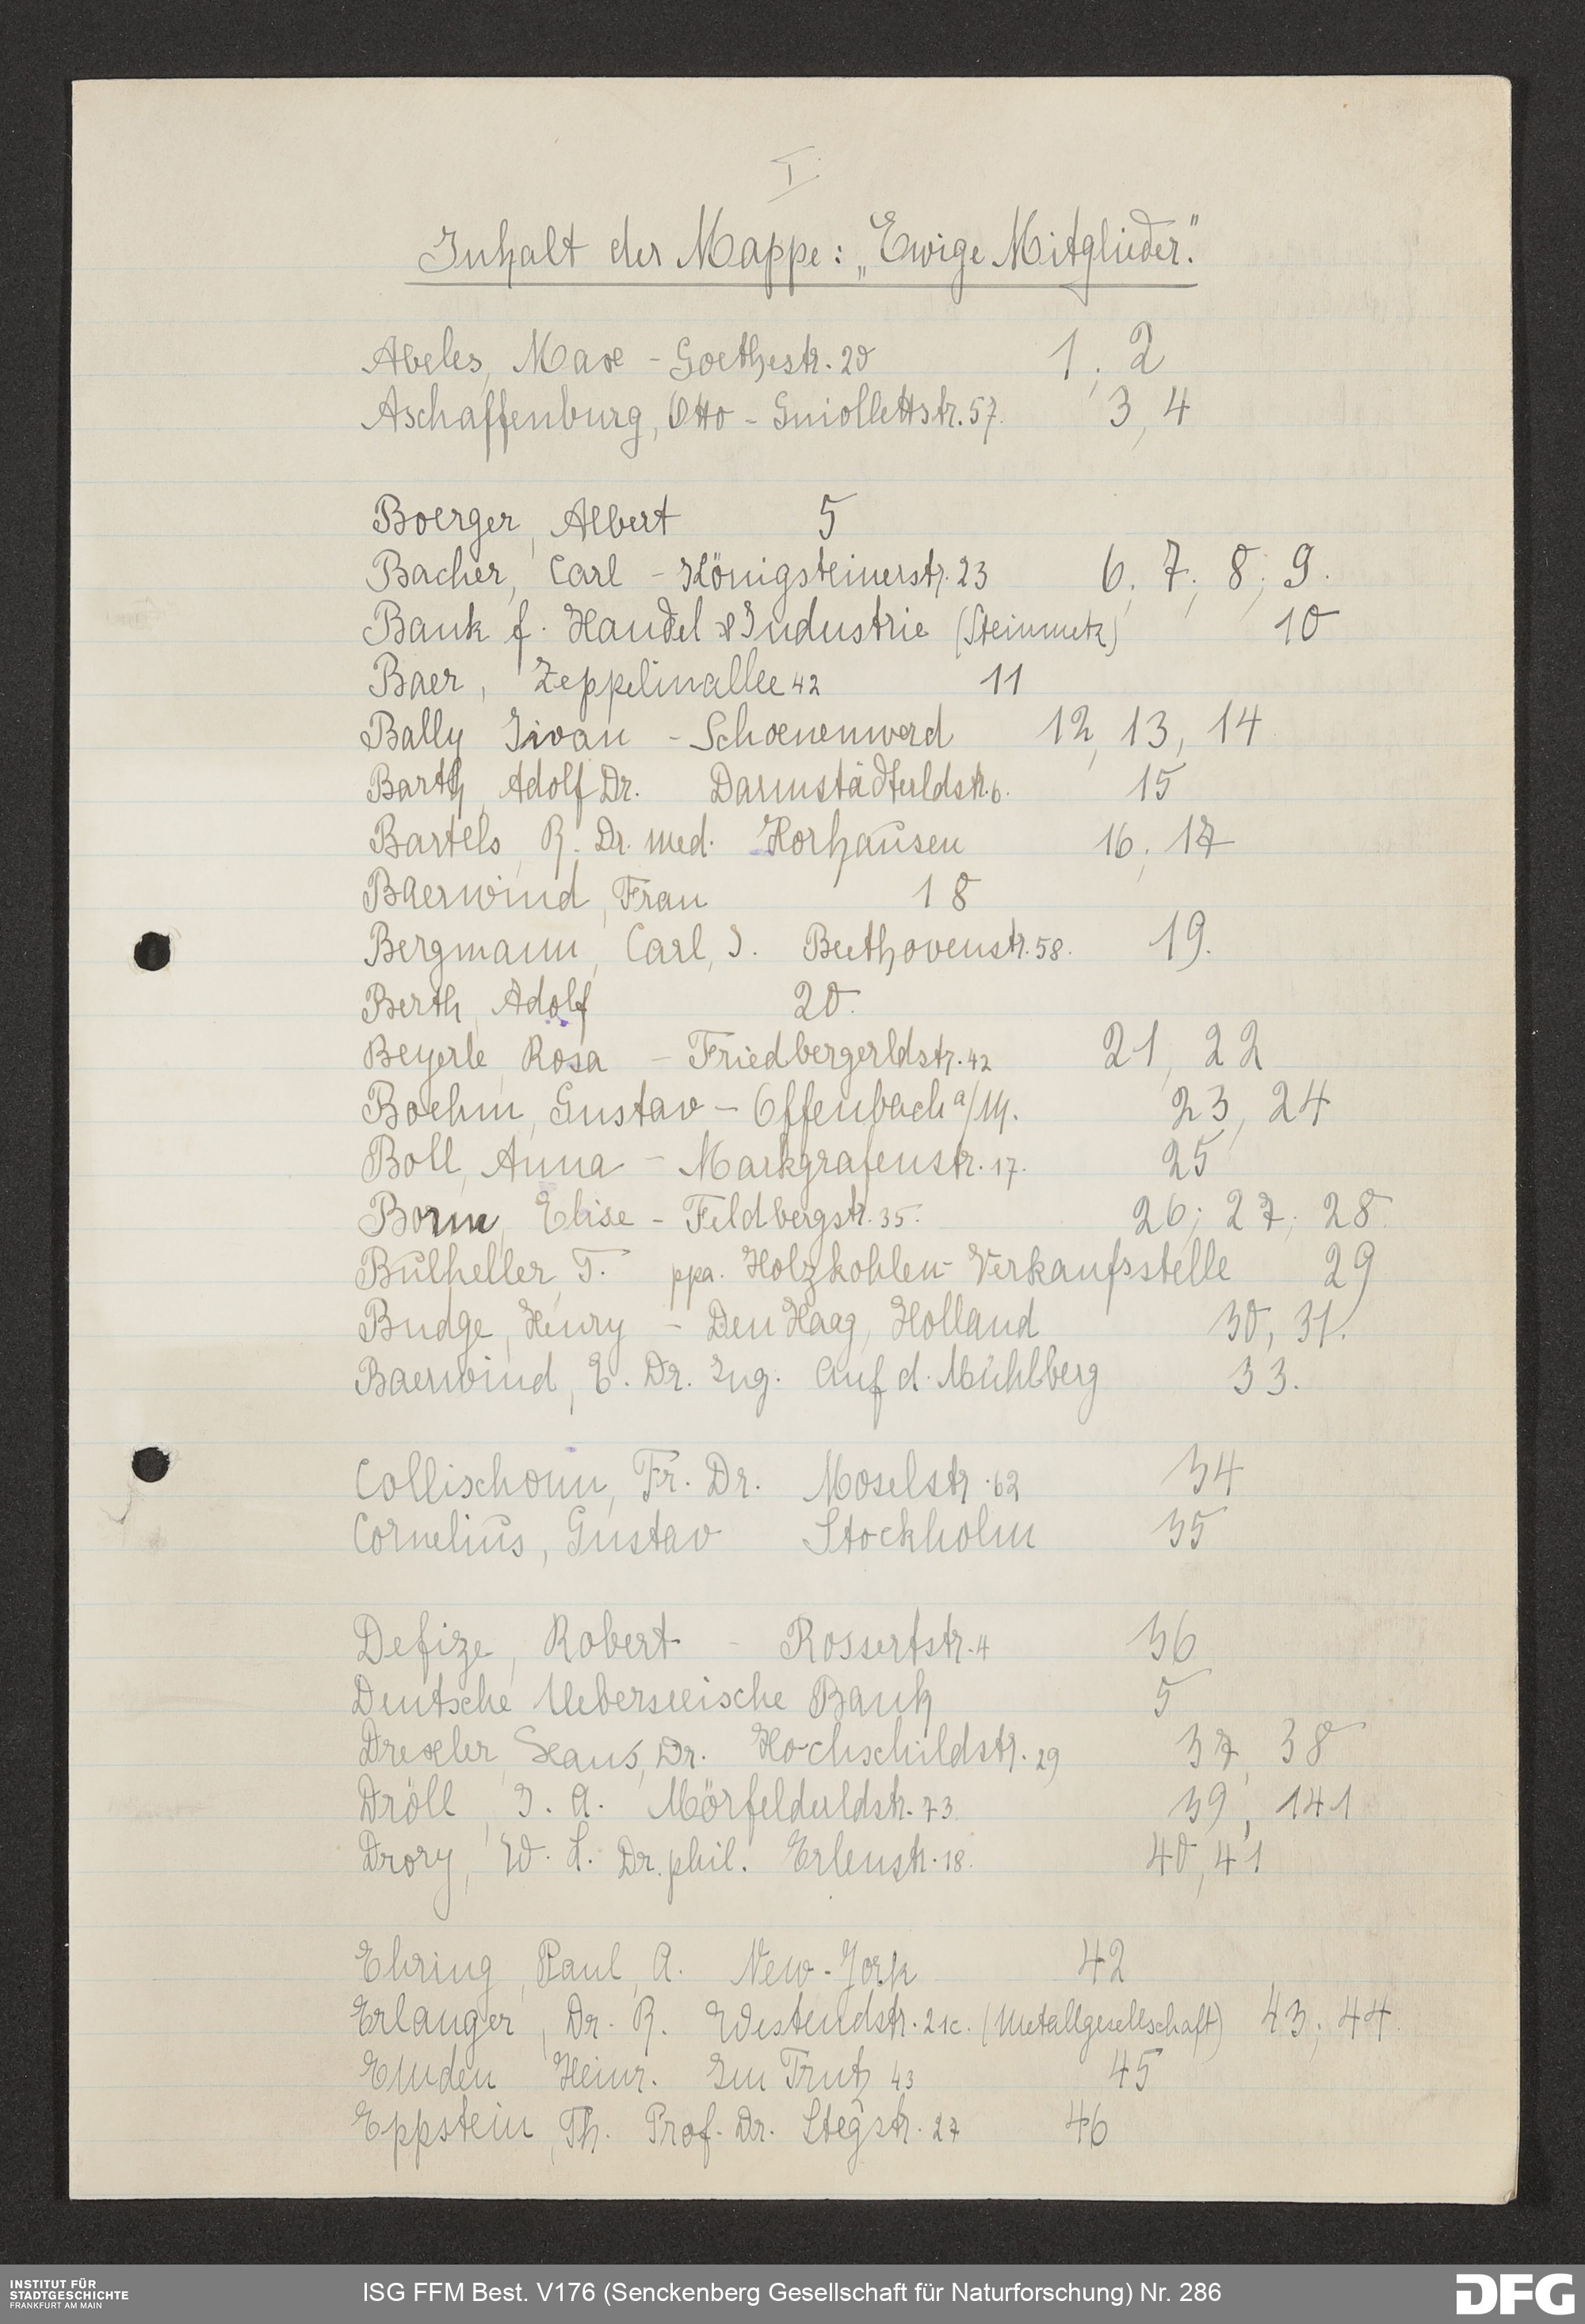 I.
Inhalt der Mappe: „Ewige Mitglieder."
Abeles, Max - Goethestr. 20 1, 2
Aschaffenburg, Otto - Guiollettstr. 57. 3, 4
Boerger, Albert 5
Bacher, Carl - Königsteinerstr. 23 6, 7, 8, 9.
Bank f. Handel & Industrie (Steinmetz) 10
Baer, Zeppelinallee 42 11
Bally Iwan - Schoenenwerd 12, 13, 14
Barth, Adolf Dr. Darmstädterldstr. 6. 15
Bartels, R. Dr. med. Horhausen 16, 17
Baerwind, Frau 18
Bergmann, Carl, J. Beethovenstr. 58. 19.
Berth, Adolf 20.
Beyerle, Rosa - Friedbergerldstr. 42 21, 22
Boehm, Gustav - Offenbach a/M. 23, 24
Boll, Anna - Markgrafenstr. 17. 25
Borne, Elise - Feldbergstr. 35. 26, 27, 28.
Bulheller, T. ppa. Holzkohlen-Verkaufsstelle 29
Budge, Henry - Den Haag, Holland 30, 31.
Baerwind, E. Dr. Ing. Auf d. Mühlberg 33.
Collischonn, Fr. Dr. Moselstr. 62 34
Cornelius, Gustav Stockholm 35
Defize, Robert - Rossertstr. 4 36
Deutsche Ueberseeische Bank 5
Drexler, Hans, Dr. Hochschildstr. 29 37, 38
Dröll, J. A. Mörfelderldstr. 73 39, 141
Drory, W. L. Dr. phil. Erlenstr. 18. 40, 41
Ehring, Paul, A. New-York 42
Erlanger, Dr. R. Westendstr. 21c. (Metallgesellschaft) 43, 44.
Emden Heinr. Im Trutz 43 45
Eppstein, Th. Prof. Dr. Stegstr. 27 46
INSTITUT FÜR
STADTGESCHICHTE
FRANKFURT AM MAIN
ISG FFM Best. V176 (Senckenberg Gesellschaft für Naturforschung) Nr. 286
DFG